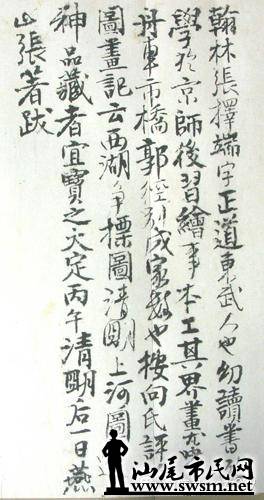 翰林張擇端字正道東武人也幼讀書
學於京師後習繪事本工其界畫尤
舟車市橋郭徑別成家數也按向氏評
圖畫記云西湖爭標圖清明上河圖
神品藏者宜寶之大定丙午清明后一日燕
山張著跋
汕尾市民网
www.swsm.net